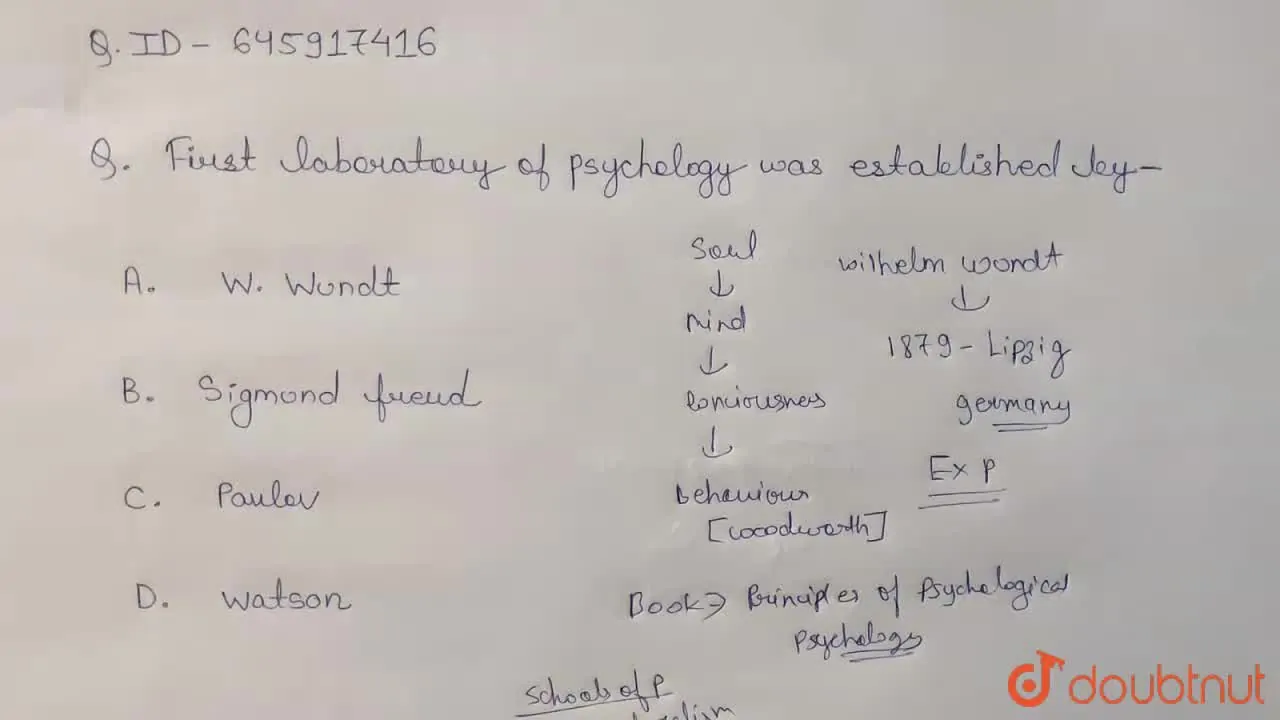 Q. ID - 645917416
Q. First laboratory of psychology was established by -
A. W. Wundt
B. Sigmond freud
C. Paulov
D. Watson
Soul
↓
Mind
↓
Conciousness
↓
Behaviour
[Woodworth]
Wilhelm Wondt
↓
1879 - Lipzig
germany
Ex P
Book → Principles of Psychological
Psychology
Schools of P
doubtnut